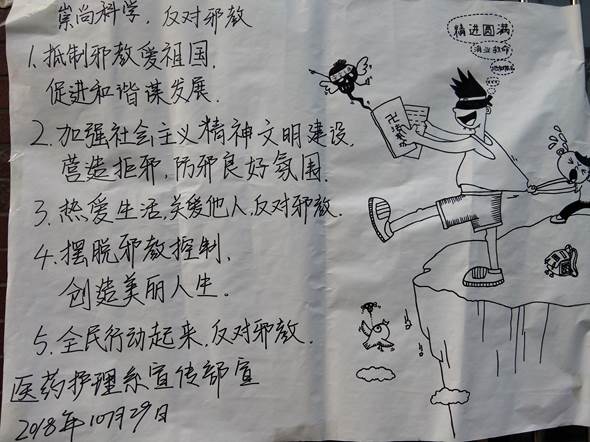 崇尚科学，反对邪教
1.抵制邪教爱祖国，
促进和谐谋发展.
2.加强社会主义精神文明建设，
营造拒邪，防邪良好氛围.
3.热爱生活，关爱他人，反对邪教.
4.摆脱邪教控制，
创造美丽人生。
5.全民行动起来，反对邪教.
医药护理系宣传部宣
2018年10月29日
精进圆满
消业救命